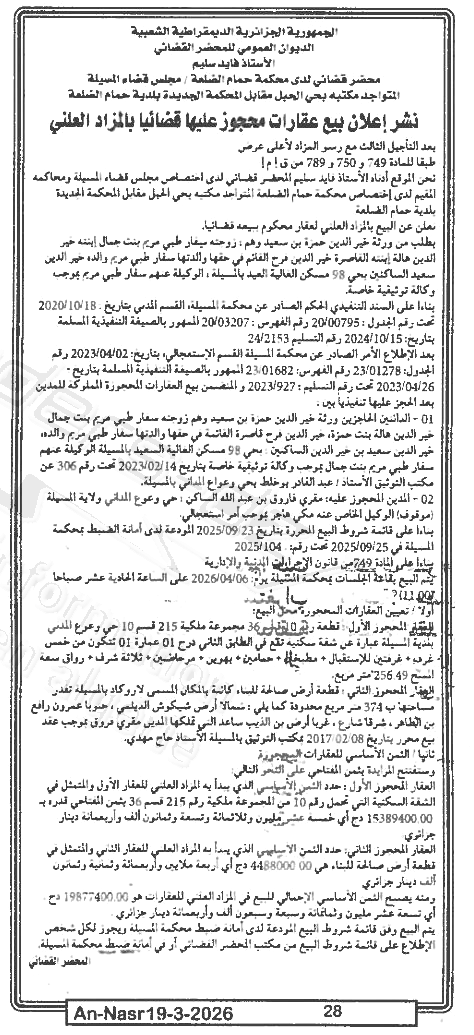 الجمهورية الجزائرية الديمقراطية الشعبية
الديوان العمومي للمحضر القضائي
الأستاذ فايد سليم
محضر قضائي لدى محكمة حمام الضلعة / مجلس قضاء المسيلة
المتواجد مكتبه بحي الحبل مقابل المحكمة الجديدة بلدية حمام الضلعة
نشر إعلان بيع عقارات محجوز عليها قضائيا بالمزاد العلني
بعد التأجيل الثالث مع رسو المزاد لأعلى عرض
طبقا للمادة 749 و 750 و 789 من ق إ م إ
نحن الموقع أدناه الأستاذ فايد سليم المحضر قضائي لدى اختصاص مجلس قضاء المسيلة ومحاكمه
المقيم لدى إختصاص محكمة حمام الضلعة المتواجد مكتبه بحي الحبل مقابل المحكمة الجديدة
بلدية حمام الضلعة
نعلن عن البيع بالمزاد العلني لعقار محكوم ببيعه قضائيا.
بطلب من ورثة خير الدين حمزة بن سعيد وهم : زوجته سفار طبي مريم بنت جمال إبنته خير
الدين هالة إبنته القاصرة خير الدين فرح القائم في حقها والدتها سفار طبي مريم والده خير الدين
سعيد الساكنين بحي 98 مسكن العالية العيد بالمسيلة، الوكيلة عنهم سفار طبي مريم بموجب
وكالة توثيقية خاصة.
بناءا على السند التنفيذي الحكم الصادر عن محكمة المسيلة، القسم المدني بتاريخ : 2020/10/18
تحت رقم الجدول: 20/00795 رقم الفهرس : 20/03207 الممهور بالصيغة التنفيذية المسلمة
بتاريخ : 2024/10/15 رقم التسليم 24/2153
بعد الإطلاع الأمر الصادر عن محكمة المسيلة القسم الإستعجالي، بتاريخ: 2023/04/02 رقم
الجدول: 23/01278 رقم الفهرس: 23/01682 الممهور بالصيغة التنفيذية المسلمة بتاريخ -
2023/04/26 تحت رقم التسليم : 2023/927 و المتضمن بيع العقارات المحجوزة المملوكة للمدين
بعد الحجز عليها تنفيذيا بين :
01 - الدائنين الحاجزين ورثة خير الدين حمزة بن سعيد وهم زوجته سفار طبي مريم بنت جمال
خير الدين هالة بنت حمزة، خير الدين فرح قاصرة القائمة في حقها والدتها سفار طبي مريم والده،
خير الدين سعيد بن خير الدين الساكنين : بحي 98 مسكن العالية السعيد بالمسيلة الوكيلة عنهم
سفار طبي مريم بنت جمال بموجب وكالة توثيقية خاصة بتاريخ 2023/02/14 تحت رقم 306 عن
مكتب التوثيق الأستاذ / عبد القادر بوخلط بحي وعواع المداني بالمسيلة.
02 - المدين المحجوز عليه: مقري فاروق بن عبد الله الساكن : حي وعوع المداني ولاية المسيلة
(موقوف) الوكيل الخاص عنه مكي هاجر بموجب أمر استعجالي.
بناءا على قائمة شروط البيع المحررة بتاريخ 2025/09/23 المودعة لدى أمانة الضبط بمحكمة
المسيلة في 2025/09/25 تحت رقم: 2025/104
بناءا على المادة 749 من قانون الإجراءات المدنية والإدارية
يتم البيع بقاعة الجلسات بمحكمة المسيلة يوم: 2026/04/06 على الساعة الحادية عشر صباحا
أولا/ تعيين العقارات المحجوزة محل البيع:
العقار المحجوز الأول: قطعة رقم 10 قسم 36 مجموعة ملكية 215 قسم 10 حي وعوع المدني
بلدية المسيلة عبارة عن شقة سكنية تقع في الطابق الثاني درج 01 عمارة 01 تتكون من خمس
غرف + غرفتين للإستقبال + مطبخ + حمامين + بهوين + مرحاضين + ثلاثة شرف + رواق سعة
المسح 256.49 متر مربع.
العقار المحجوز الثاني : قطعة أرض صالحة للبناء كائنة بالمكان المسمى لاروكاد بالمسيلة تقدر
مساحتها ب 374 متر مربع محدودة كما يلي : شمالا أرض شيكوش الديلمي، جنوبا عمرون رافع
بن الطاهر، شرقا شارع، غربا أرض بن الذيب ساعد التي تملكها المدين مقري فروق بموجب عقد
بيع محرر بتاريخ 2017/02/08 بمكتب التوثيق بالمسيلة الأستاذ حاج مهدي.
ثانيا / الثمن الأساسي للعقارات المحجوزة
وستفتتح المزايدة بثمن المفتاحي على النحو التالي:
العقار المحجوز الأول : حدد الثمن الأساسي الذي يبدأ به المزاد العلني للعقار الأول والمتمثل في
الشقة السكنية التي تحمل رقم 10 من المجموعة ملكية رقم 215 قسم 36 بثمن المفتاحي قدره بـ
15389400.00 دج أي خمسة عشر مليون وثلاثمائة وتسعة وثمانون ألف وأربعمائة دينار
جزائري.
العقار المحجوز الثاني: حدد الثمن الأساسي الذي يبدأ به المزاد العلني للعقار الثاني والمتمثل في
قطعة أرض صالحة للبناء هي 4488000.00 دج أي أربعة ملايين وأربعمائة وثمانية وثمانون
ألف دينار جزائري
ومنه يصبح الثمن الأساسي الإجمالي للبيع في المزاد العلني للعقارات هو 19877400.00 دج.
أي تسعة عشر مليون وثمانمائة وسبعة وسبعون ألف وأربعمائة دينار جزائري.
يتم البيع وفق قائمة شروط البيع المودعة لدى أمانة ضبط محكمة المسيلة ويجوز لكل شخص
الإطلاع على قائمة شروط البيع من مكتب المحضر القضائي أو في أمانة ضبط محكمة المسيلة.
المحضر القضائي
An-Nasr19-3-2026
28